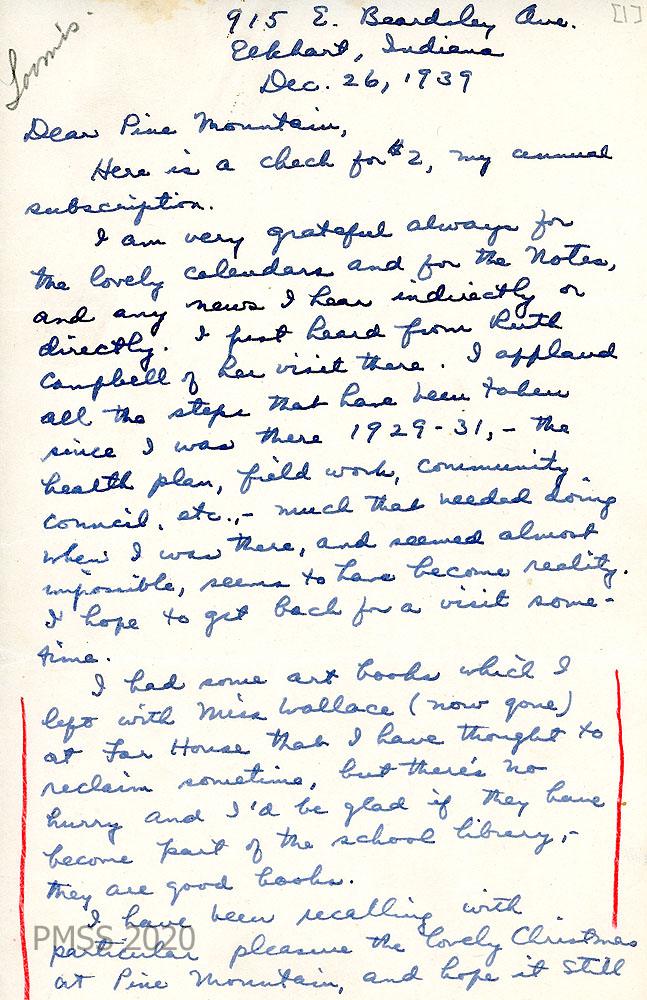 [1]
Loomis.
915 E. Beardsley Ave.
Elkhart, Indiana
Dec. 26, 1939
Dear Pine Mountain,
Here is a check for $2, my annual
subscription.
I am very grateful always for
the lovely calendars and for the Notes,
and any news I hear indirectly or
directly. I just heard from Ruth
Campbell of her visit there. I applaud
all the steps that have been taken
since I was there 1929-31, - the
health plan, field work, community
council, etc., - much that needed doing
when I was there, and seemed almost
impossible, seems to have become reality.
I hope to get back for a visit some-
time.
I had some art books which I
left with Miss Wallace (now gone)
at Far House that I have thought to
reclaim sometime, but there's no
hurry and I'd be glad if they have
become part of the school library, -
they are good books.
I have been recalling with
particular pleasure the lovely Christmas
at Pine Mountain, and hope it still
PMSS 2020